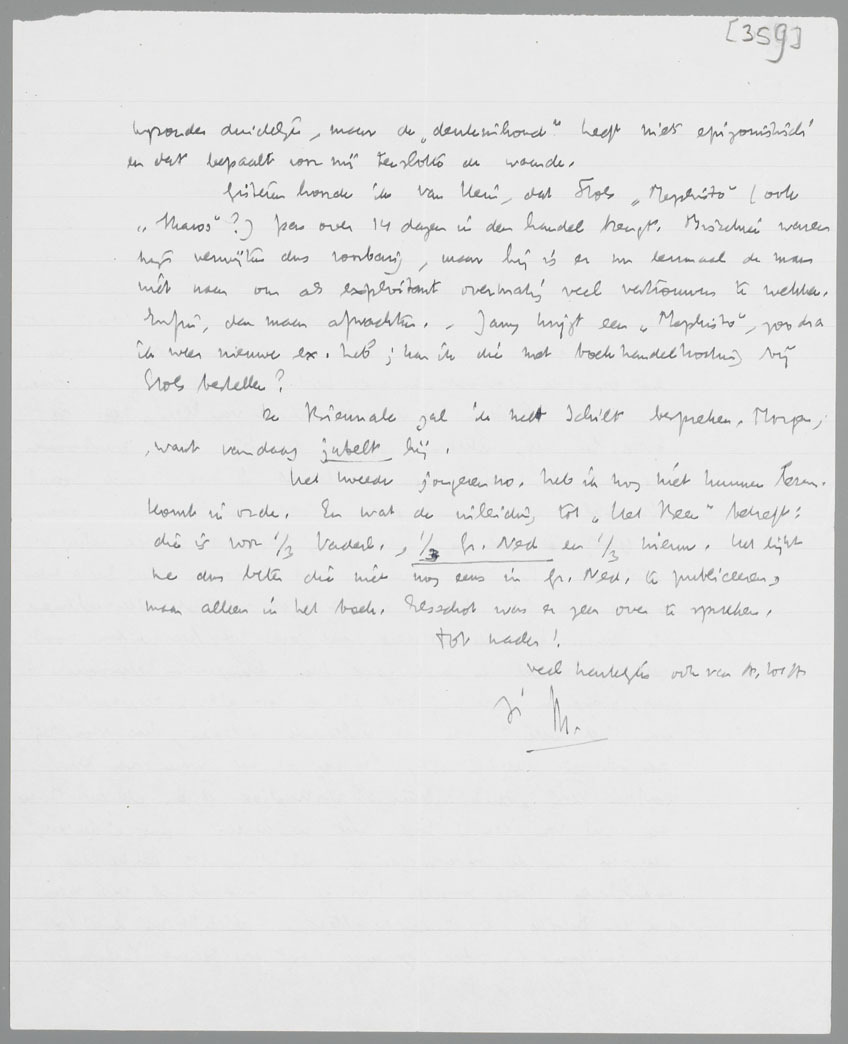 [359]
bijzonder duidelijk, maar de „denkinhoud" heeft niets epigonistisch
en dat bepaalt voor mij tenslotte de waarde.
Gisteren hoorde ik van Henri, dat Stols „Mephisto" (ook
„Chaos"?) pas over 14 dagen in den handel brengt. Misschien waren
mijn verwijten dus voorbarig, maar hij is er nu eenmaal de man
niet naar om als exploitant overmatig veel vertrouwen te wekken.
Enfin, dan maar afwachten. - Jany krijgt een „Mephisto", zoodra
ik weer nieuwe ex. heb; kan ik die met boekhandelkorting bij
Stols bestellen?
De Biennale zal ik met Schilt bespreken. Morgen,
want vandaag jubelt hij.
Het tweede jongerenno. heb ik nog niet kunnen lezen.
Komt in orde. En wat de inleiding tot „Het Neen" betreft:
die is voor 1/3 Vaderl., 1/3 Gr. Ned en 1/3 nieuw. Het lijkt
me dus beter die niet nog eens in Gr. Ned. te publiceeren,
maar alleen in het boek. Elsschot was er zeer over te spreken.
Tot nader!
veel hartelijks ook van A. tot A.
je M.